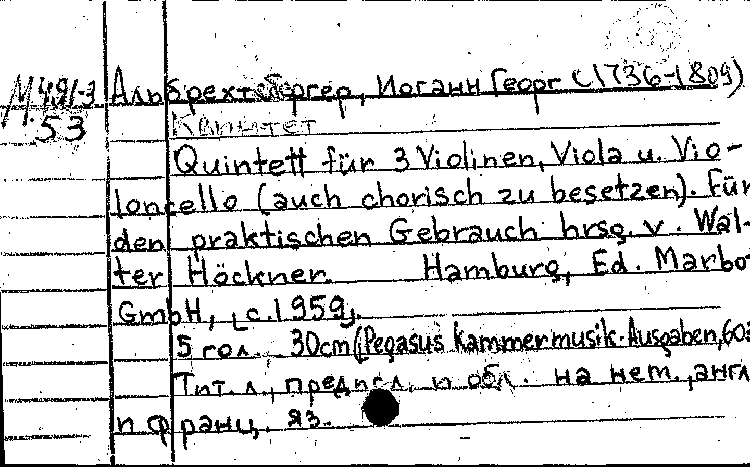 М.4.91-3 Альбрехтсбергер, Иоганн Георг (1736-1809)
53 Квинтет
Quintett für 3 Violinen, Viola u. Vio-
loncello (auch chorisch zu besetzen). Für
den praktischen Gebrauch hrsg. v. Wal-
ter Höckner. Hamburg, Ed. Marbo-
GmbH, [c.1959].
5 гол. 30cm (Pegasus Kammermusik-Ausgaben,
Тит. л., предисл. и обл. на нем., англ
и франц. яз.